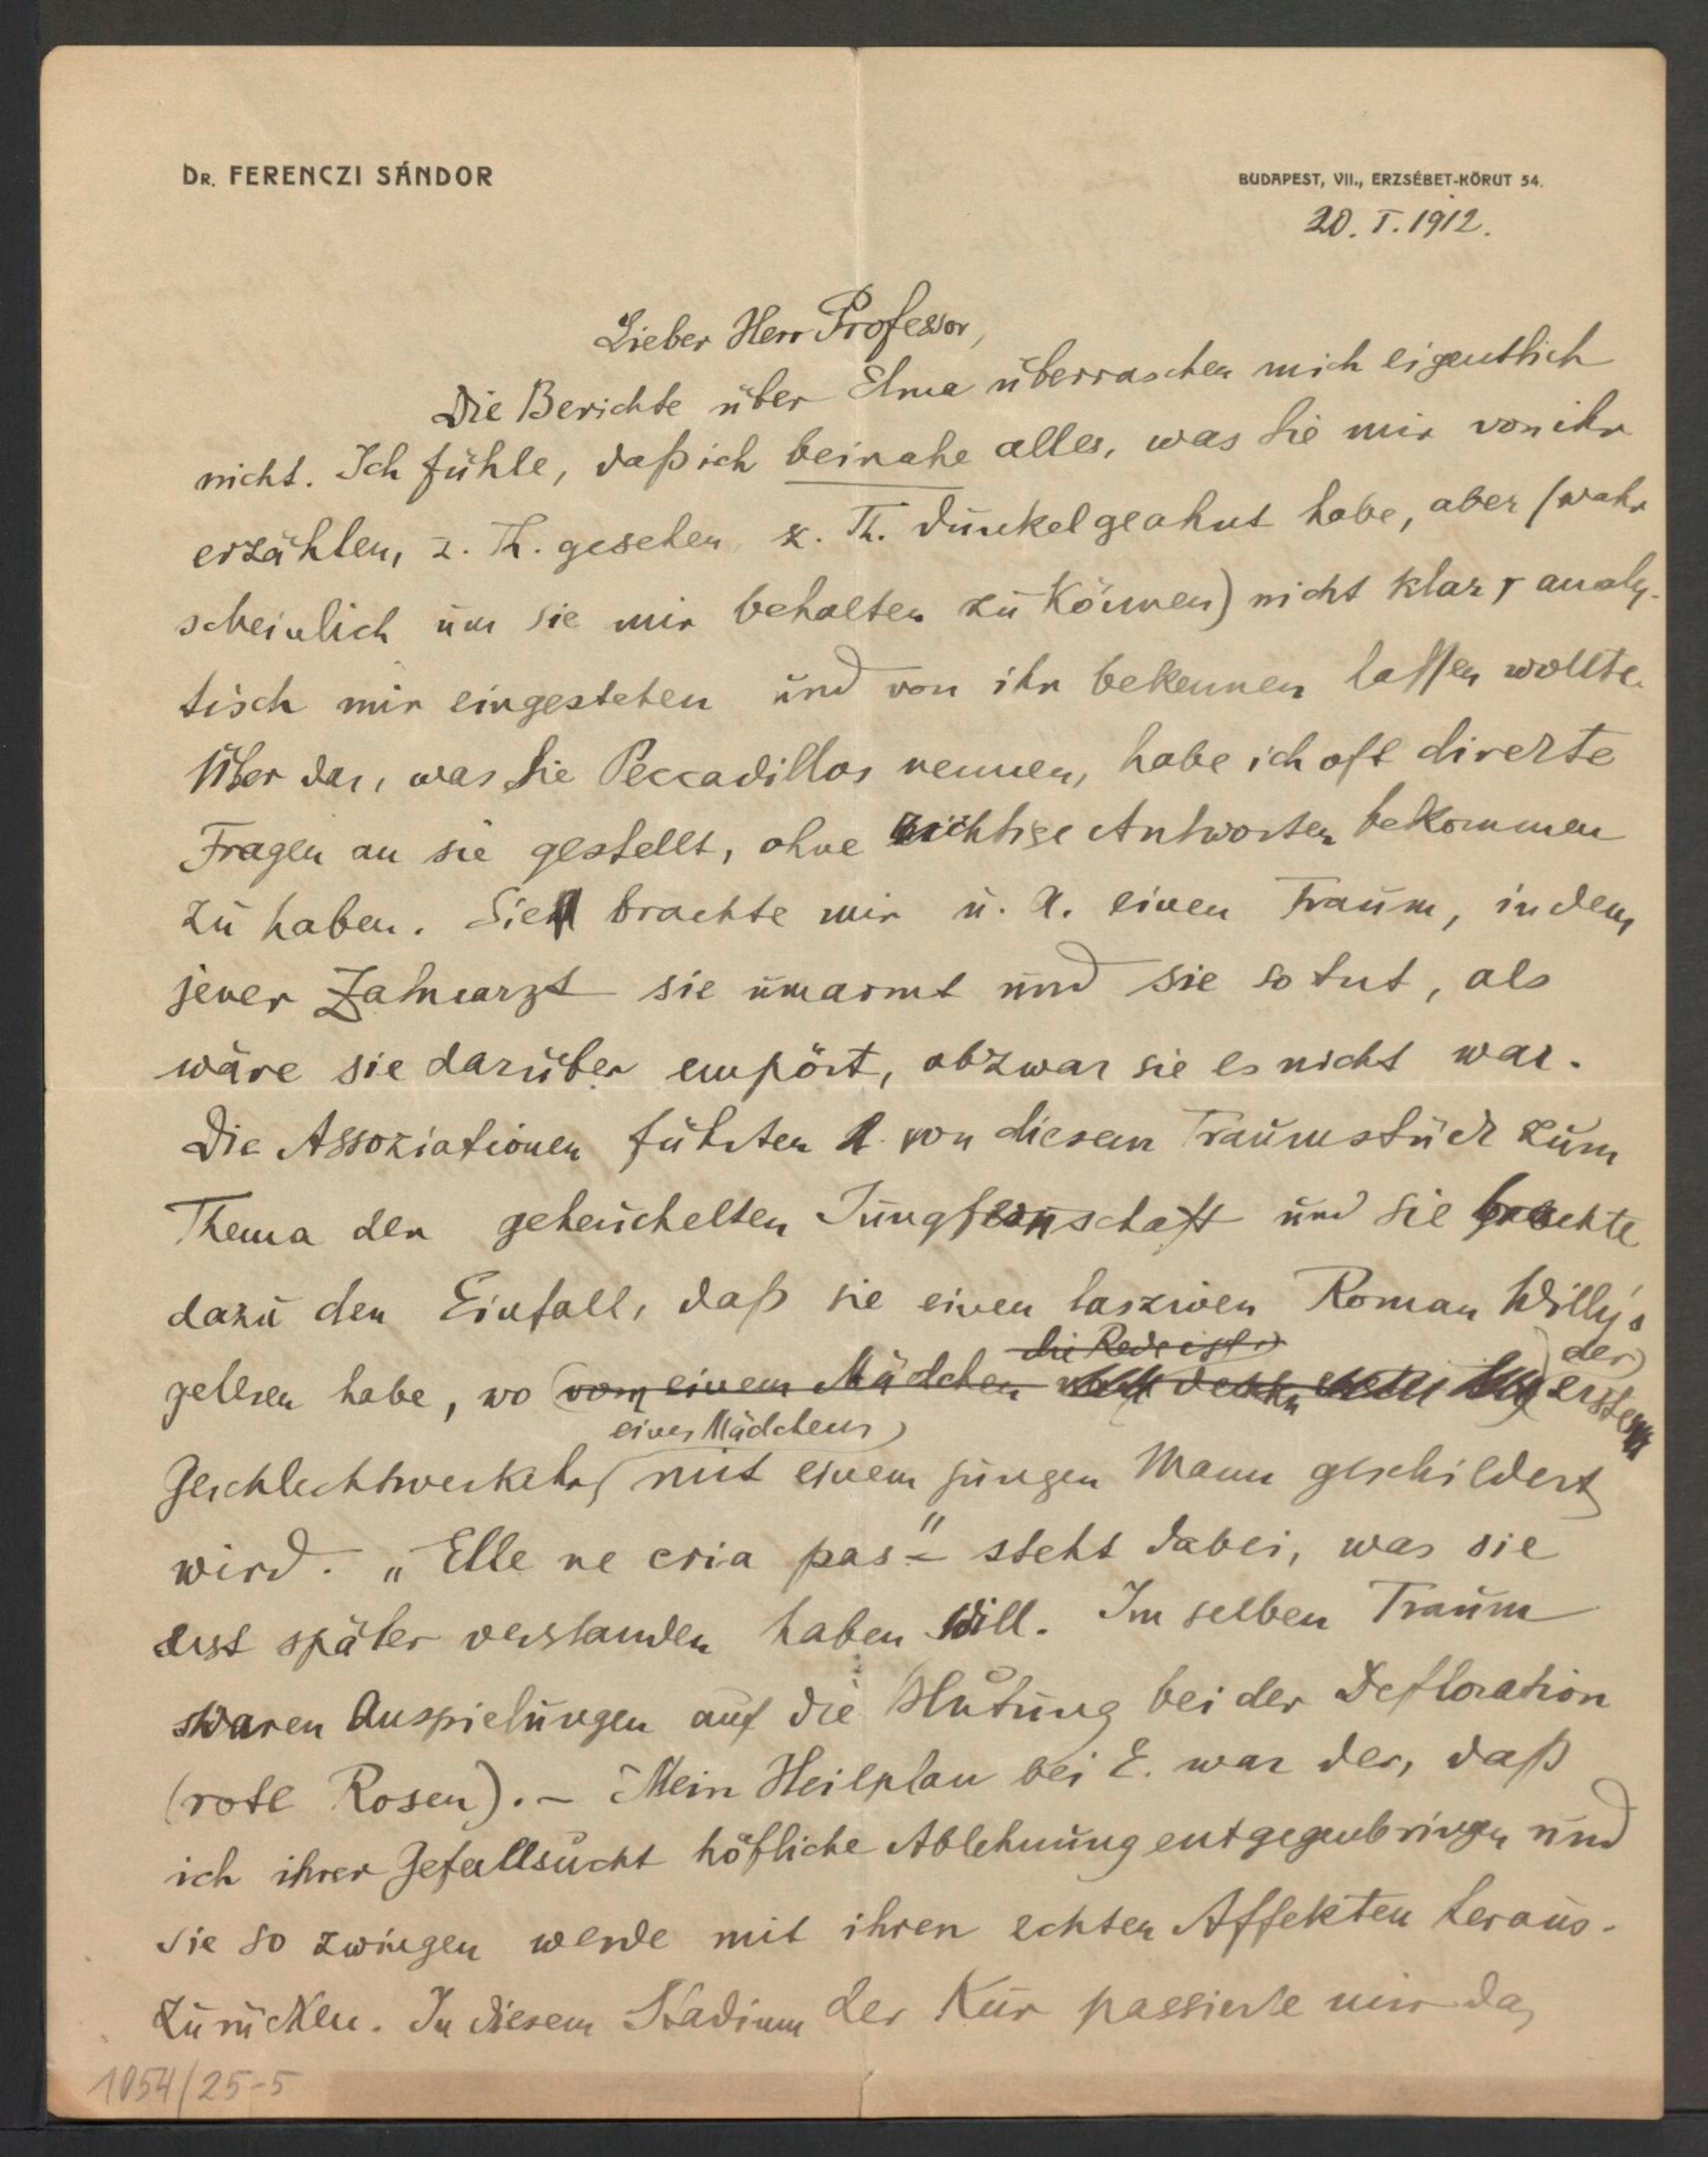 DR. FERENCZI SÁNDOR
BUDAPEST, VII., ERZSÉBET-KÖRUT 54.
20. I. 1912.
Lieber Herr Professor,
Die Berichte über Elma überraschen mich eigentlich
nicht. Ich fühle, daß ich beinahe alles, was Sie mir von ihr
erzählen, z. Th. gesehen z. Th. dunkel geahnt habe, aber (wahr
scheinlich um sie mir behalten zu können) nicht klar, analy-
tisch mir eingestehen und von ihr bekennen lassen wollte.
Über das, was Sie Peccadillos nennen, habe ich oft direkte
Fragen an sie gestellt, ohne richtige Antworten bekommen
zu haben. Sie brachte mir u. A. einen Traum, in dem
jener Zahnarzt sie umarmt und sie so tut, als
wäre sie darüber empört, obzwar sie es nicht war.
Die Assoziationen führten von diesem Traumstück zum
Thema der geheuchelten Jungfernschaft und sie brachte
dazu den Einfall, daß sie einen lasziven Roman Willy's
die Rede ist
gelesen habe, wo von einem Mädchen der ersten
eines Mädchens
Geschlechtsverkehr mit einem jungen Mann geschildert
wird. „Elle ne cria pas" – steht dabei, was sie
erst später verstanden haben will. Im selben Traum
waren Anspielungen auf die Blutung bei der Defloration
(rote Rosen). – Mein Heilplan bei E. war der, daß
ich ihrer Gefallsucht höfliche Ablehnung entgegenbringen und
sie so zwingen werde mit ihren echten Affekten heraus-
zurücken. In diesem Stadium der Kur passierte mir das
1054/25-5